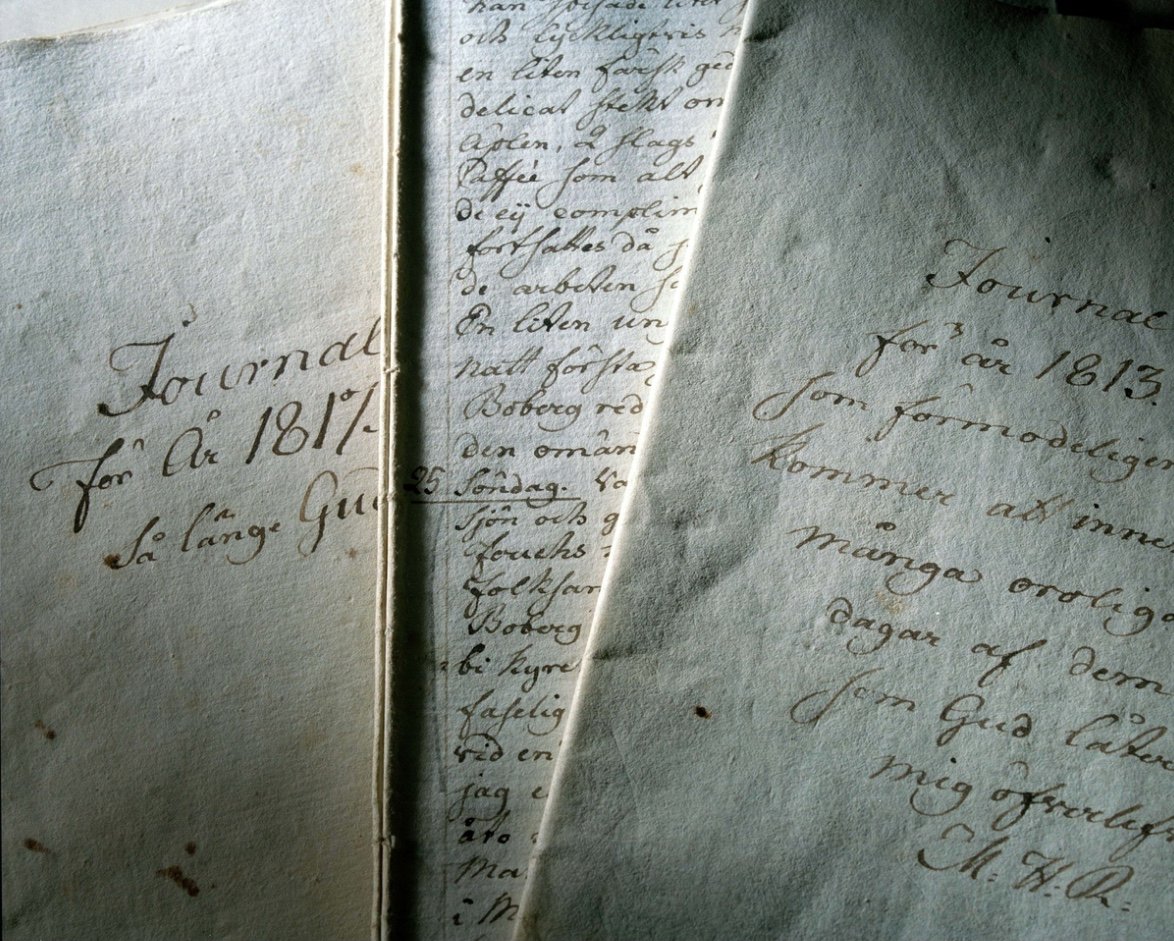 Journal
för År 1817.
så länge Gud
och lyckligtvis
en liten färsk
delicat stekt
Äplen, 2 slags
Caffée som alt
de ej complim
fortsattes då
de arbeten
En liten ung
natt första
Boberg red
den omän
25 Söndag. Va
sjön och g
Fouchs
folksam
Boberg
bi kyrc
faselig
vid en
jag
äro
Ma
i M
Journal
för år 1813.
som förmodeligen
kommer att inne
många oroliga
dagar af dem
som Gud låter
mig öfverlef
M: H: R: